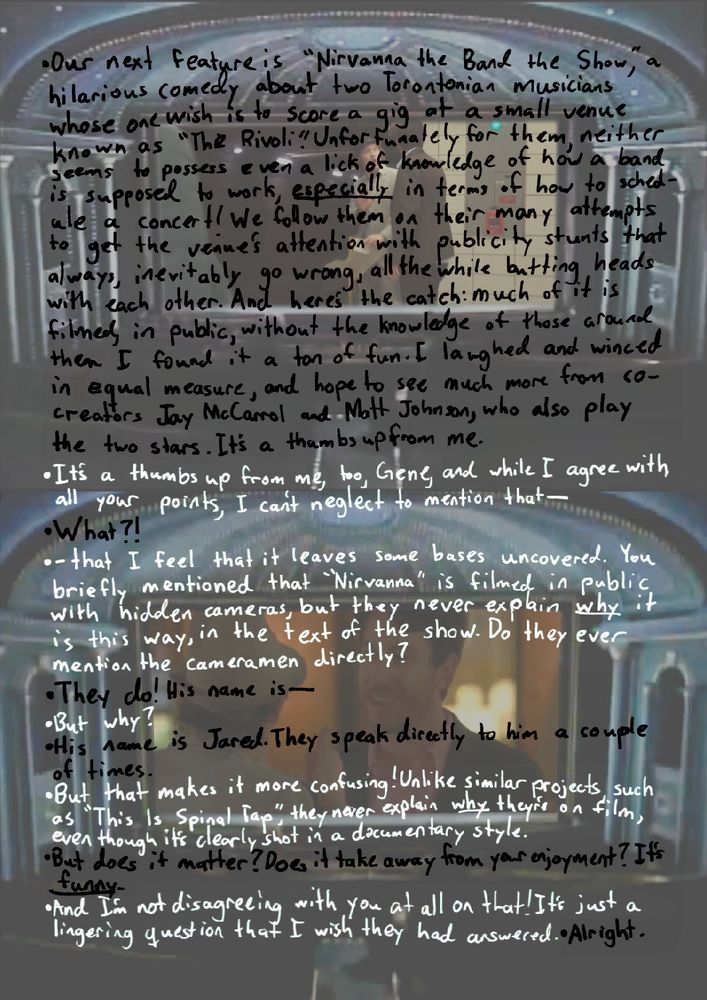 •Our next feature is "Nirvanna the Band the Show," a
hilarious comedy about two Torontonian musicians
whose one wish is to score a gig at a small venue
known as "The Rivoli". Unfortunately for them, neither
seems to possess even a lick of knowledge of how a band
is supposed to work, especially in terms of how to sched-
ule a concert! We follow them on their many attempts
to get the venue's attention with publicity stunts that
always, inevitably go wrong, all the while butting heads
with each other. And here's the catch: much of it is
filmed, in public, without the knowledge of those around
them. I found it a ton of fun. I laughed and winced
in equal measure, and hope to see much more from co-
creators Jay McCarrol and Matt Johnson, who also play
the two stars. It's a thumbs up from me.
•It's a thumbs up from me, too, Gene, and while I agree with
all your points, I can't neglect to mention that—
•What?!
•—that I feel that it leaves some bases uncovered. You
briefly mentioned that "Nirvanna" is filmed in public
with hidden cameras, but they never explain why it
is this way, in the text of the show. Do they ever
mention the cameramen directly?
•They do! His name is—
•But why?
•His name is Jared. They speak directly to him a couple
of times.
•But that makes it more confusing! Unlike similar projects, such
as "This Is Spinal Tap", they never explain why they're on film,
even though it's clearly shot in a documentary style.
•But does it matter? Does it take away from your enjoyment? It's
funny—
•And I'm not disagreeing with you at all on that! It's just a
lingering question that I wish they had answered. •Alright.